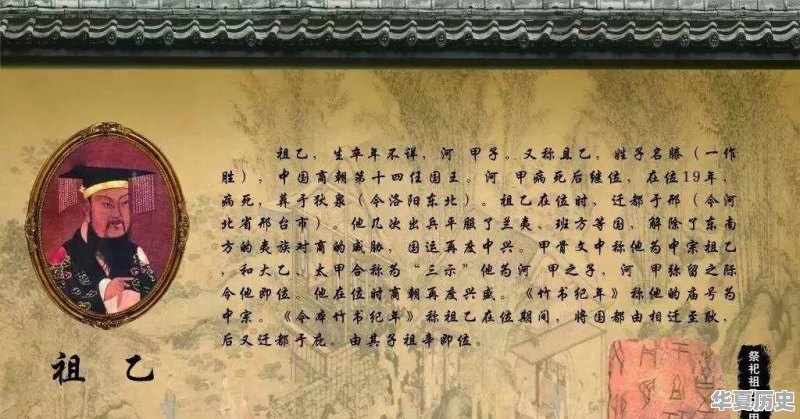 祖乙，生卒年不详，河 甲子。又称且乙，姓子名滕（一作
胜），中国商朝第十四任国王。河 甲病死后继位，在位19年，
病死，葬于狄泉（今洛阳东北）。祖乙在位时，迁都于邢（今河
北省邢台市） 他几次出兵平服了兰夷、班方等国，解除了东南
方的夷族对商的威胁，国运再度中兴。甲骨文中称他为中宗祖乙
，和大乙、太甲合称为“三示”他为河 甲之子，河 甲弥留之际
令他即位。他在位时商朝再度兴盛。《竹书纪年》称他的庙号为
中宗。《今本竹书纪年》称祖乙在位期间，将国都由相迁至耿，
后又迁都于庇。由其子祖辛即位。
祖乙
祭祀祖
华夏历史